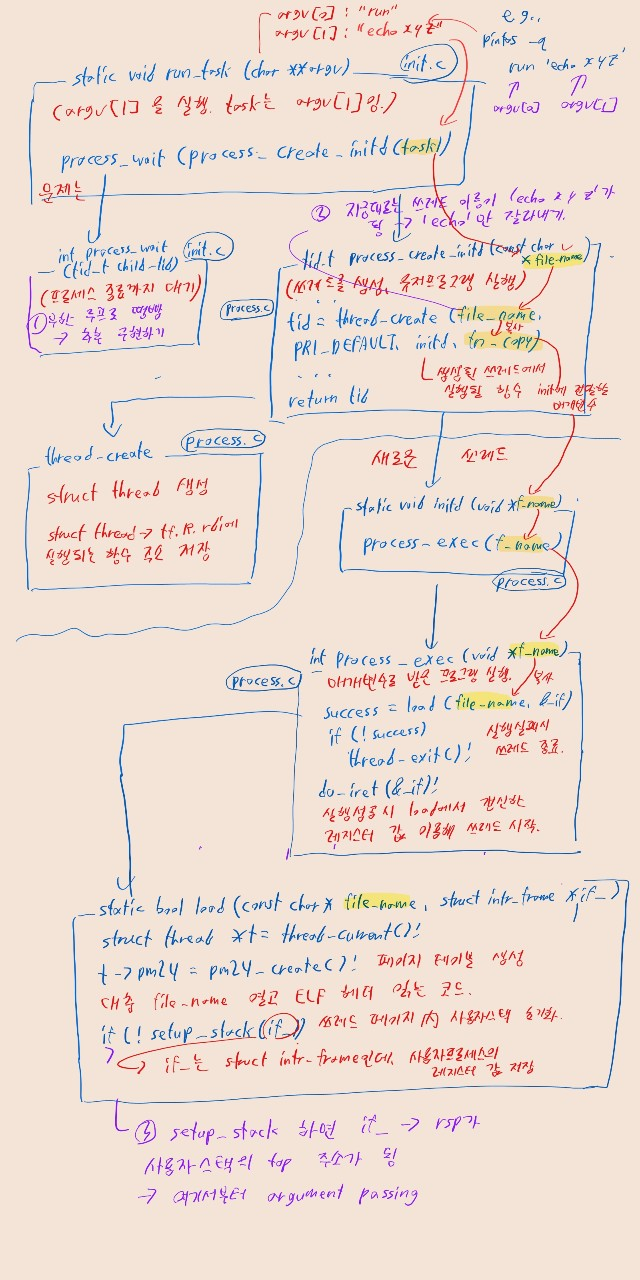 argv[0] : "run"
argv[1] : "echo x y z"
e.g.,
pintos -q
run 'echo x y z'
argv[0] argv[1]
static void run_task (char **argv)
init.c
(argv[1] 을 실행. task는 argv[1]임.)
process_wait (process_create_initd(task))
문제는
② 지금대로는 쓰레드 이름이 'echo x y z'가
됨 → 'echo'만 잘라내기.
int process_wait
(tid_t child_tid)
init.c
(프로세스 종료까지 대기)
① 무한 루프로 땜빵
→ 추후 구현하기
tid_t process_create_initd(const char
* file_name)
process.c
(쓰레드를 생성, 유저프로그램 실행)
. . .
tid = thread_create (file_name,
복사
PRI_DEFAULT, initd, fn_copy)
생성된 쓰레드에서
실행될 함수 init에 전달할
매개변수
. . .
return tid
thread_create
process.c
struct thread 생성
struct thread → tf.R.rdi에
실행되는 함수 주소 저장
새로운 쓰레드
static void initd (void *f_name)
process_exec (f_name)
process.c
int process_exec (void *f_name)
process.c
매개변수로 받은 프로그램 실행.
복사
success = load (file_name, &_if)
if (! success)
thread_exit();
실행실패시
쓰레드 종료.
do_iret (&_if);
실행성공시 load에서 갱신한
레지스터 값 이용해 쓰레드 시작.
static bool load (const char* file_name, struct intr_frame *if_)
struct thread *t = thread_current();
t->pml4 = pml4_create(); 페이지 테이블 생성
대충 file_name 열고 ELF 헤더 읽는 코드.
if (! setup_stack (if_)) 쓰레드 페이지 內 사용자스택 초기화.
if_는 struct intr_frame인데, 사용자프로세스의
레지스터 값 저장
③ setup_stack 하면 if_ → rsp가
사용자스택의 top 주소가 됨
→ 여기서부터 argument passing